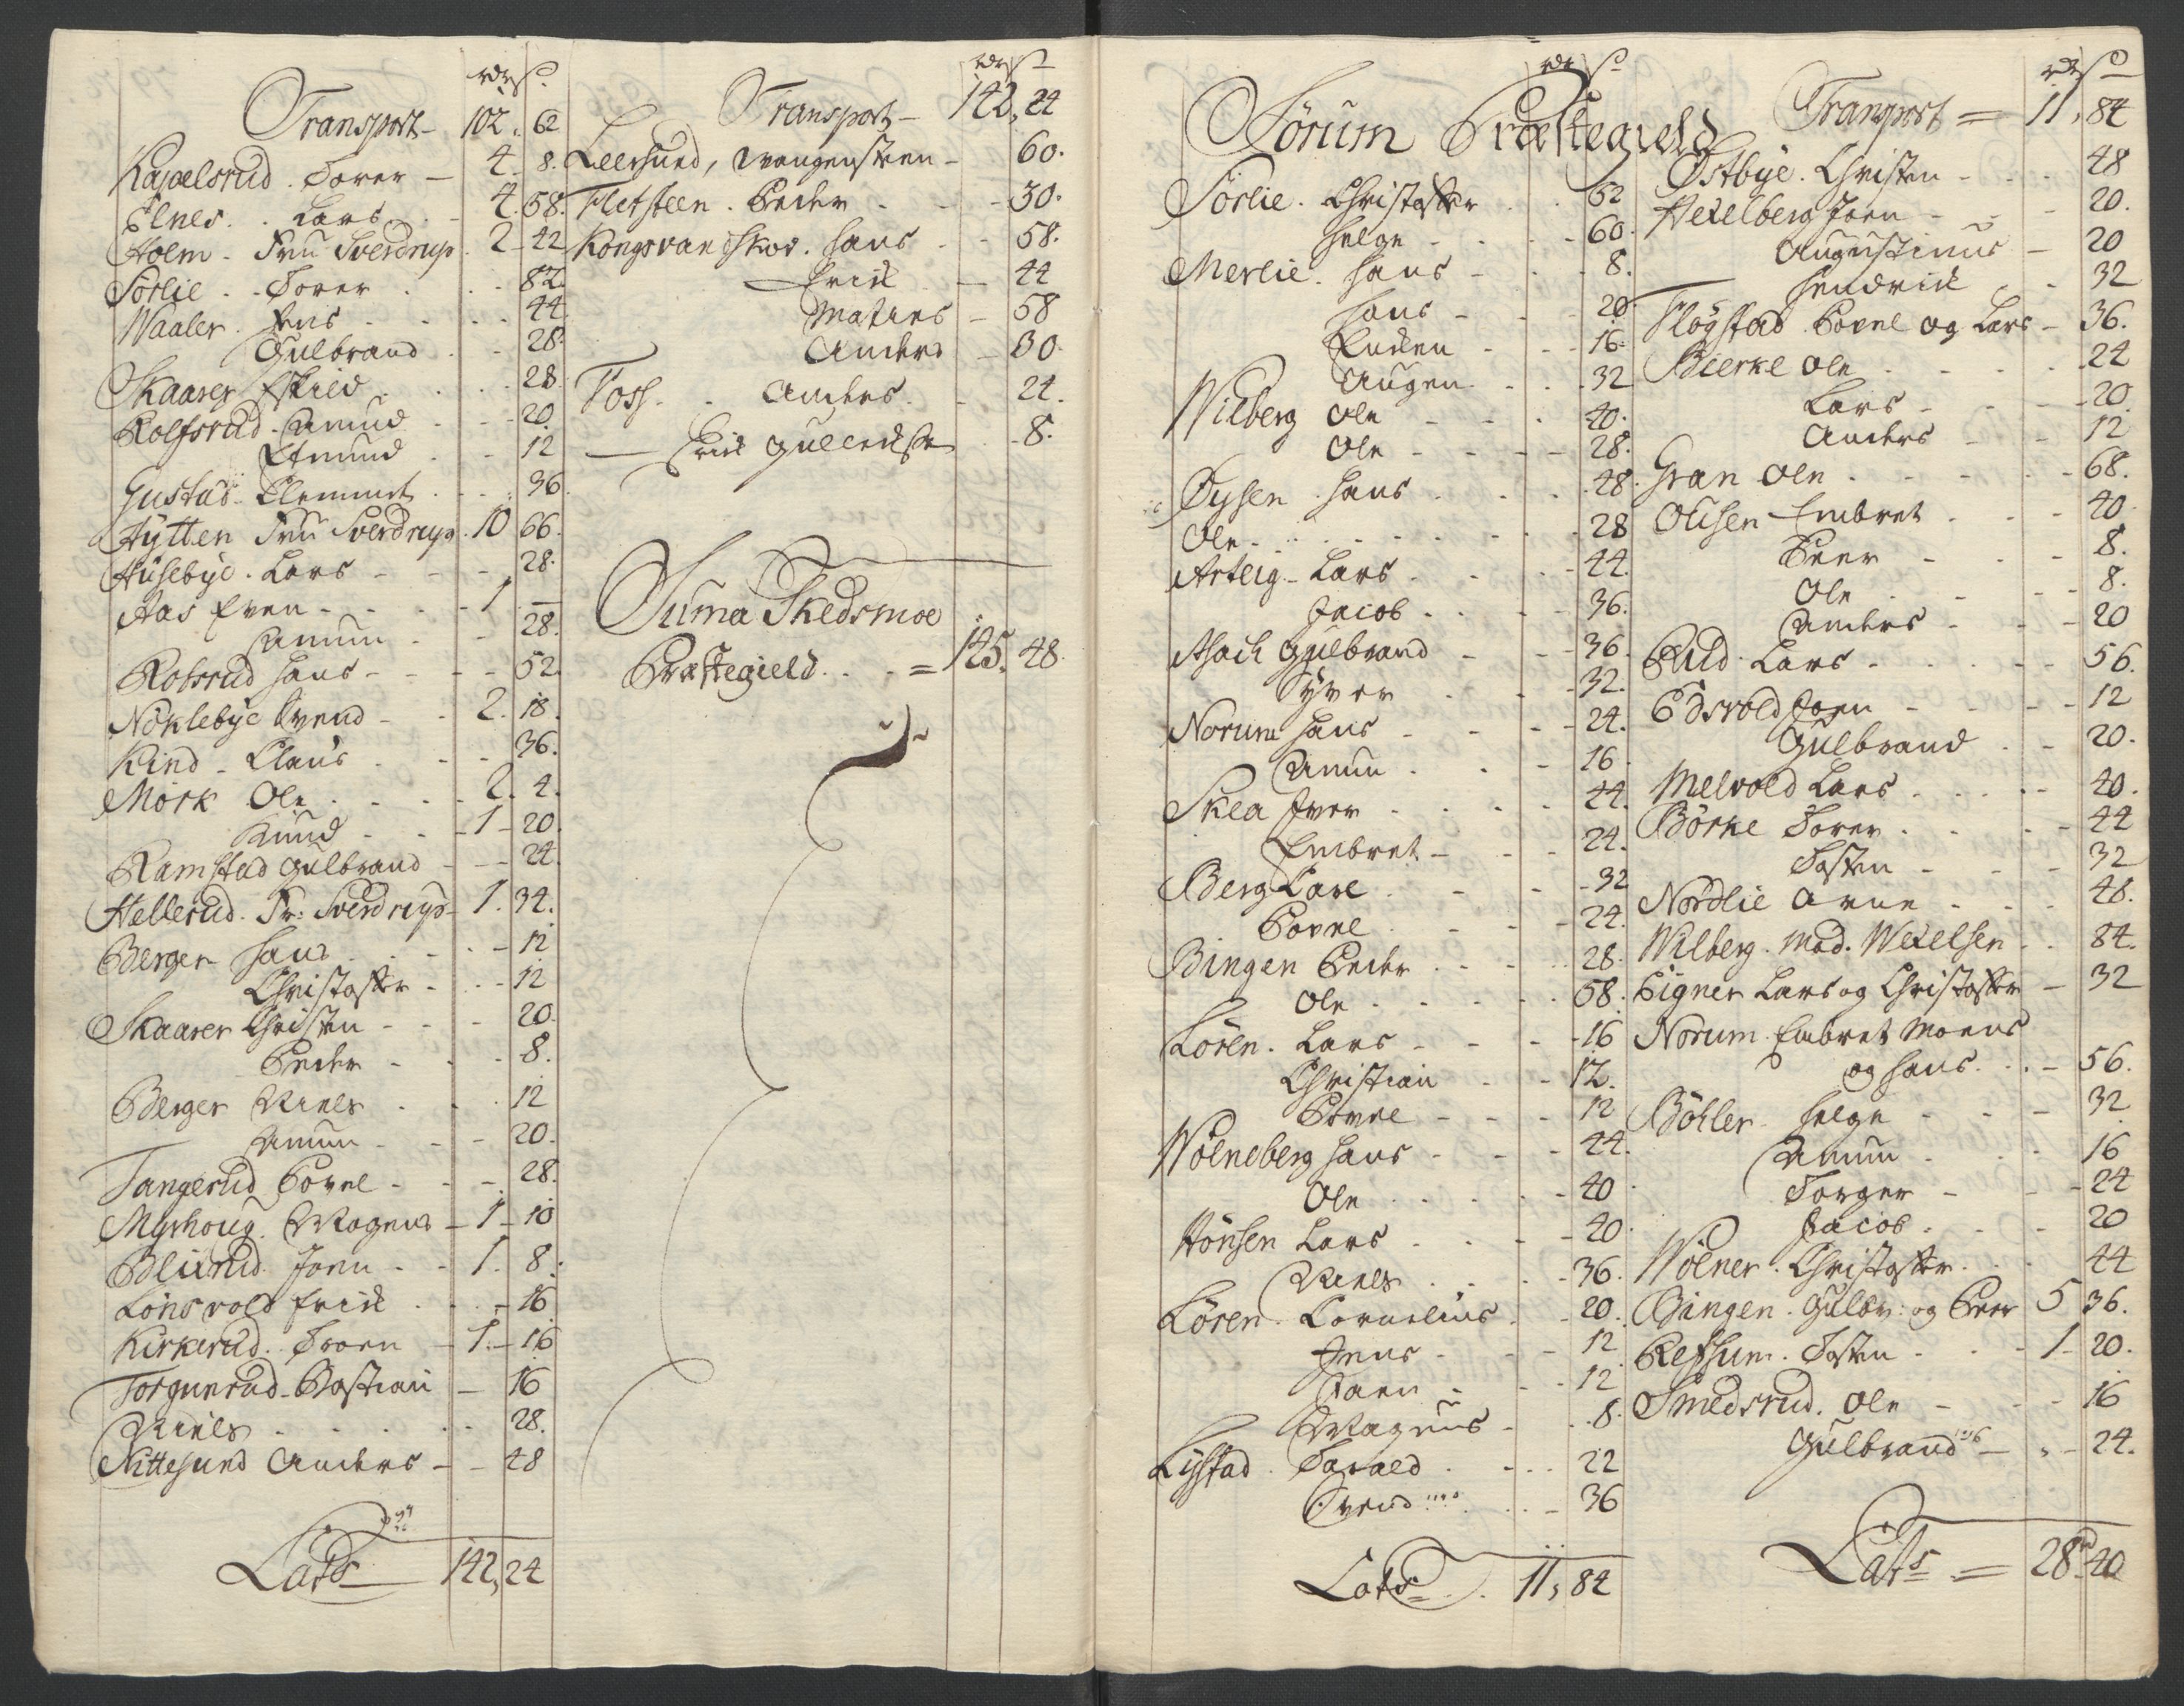 rdr ß
Transport - 102. 62
Kapelsrud. Torer - 4. 8.
Elnes. Lars - 4. 58.
Holm - Fru Sverdrup 2 - 42
Sörlie. Torer 82.
Waaler. Jens 44.
Gulbrand 28.
Skaarer Eskild 28.
Rolfsrud. Amund 20.
Etmund 12
Gustad. Clemmet 36
Hytten Fru Sverdrup. 10 66.
Husebye. Lars 28.
Aas Even - 1 -
Amun 28.
Robsrud Hans 52.
Nöklebye Svend - 2. 18.
Kind - Claus 36.
Mork Ole 2. 4.
Knud - 1 - 20.
Ramstad Gulbrand - 24.
Hellerud. Fr: Sverdrup - 1. 34.
Berger Hans - 12
Christoffer - 12
Skaarer Christen - 20.
Peder - 8.
Berger Niels 12
Amun - 20.
Tangerud Povel - 28.
Myrhoug. Mogens - 1 - 10
Blixrud. Joen - 1. 8.
Lönsvold Erich - 16
Kirkerud. Troen - 1. - 16
Torgunrud - Bastian - 16
Niels 28.
Nittesund Anders - 48
Lats 142, 24
rdr ß
Transport - 142, 24
Leersund, Wangensteen - 60.
Fletsteen. Peder - 30.
Kongsvandskov. Hans - 58.
Erich - 44
Maties - 58
Anders - 30.
Foss. Anders. 24.
Erich Gullichsen - 8.
Suma Skedsmoe
Præstegield. = 145. 48.
rdr ß
Sörum Præstegield
Sörlie. Christoffer 52
Helge - 60.
Merlie. Hans - 8.
Hans - 20
Enken - 16.
Augen. 32
Wilberg Ole - 40.
Ole - 28.
Øysen. Hans 48.
Ole 28
Arteig - Lars 44.
Jacob 36.
Asach Gulbrand - 36.
Syver 32.
Norum Hans - 24.
Amun 16.
Skea Iver 44.
Embret - 24.
Berg Carl - 32
Povel 24.
Bingen Peder 28.
Ole 58.
Lören. Lars - 16
Christian - 12.
Povel - 12
Wölneberg Hans - 44.
Ole - 40.
Hönsen Lars - 40.
Niels 36.
Lören. Cornelius 20.
Jens - 12
Joen - 12
Magnus - 8.
Lystad. Tarald 22
Svend 36
Lats. 11, 84
rdr ß
Transport = 11, 84
Østbye. Christen 48
Hexelberg Joen - 20.
Augustinus - 20
Hendrich 32
Flögstad. Povel og Lars - 36.
Bierke Ole 24
Lars - 20.
Anders - 12
Gran Ole 68.
Olisen Embret 40
Peer 8.
Ole 8.
Anders 20
Ruld. Lars 56.
Edsvold Joen - 12
Gulbrand - 20.
Melvold Lars 40.
Börke Torer 44
Tosten - 32
Nordlie Arne 48.
Wilberg. Mad. Wexelsen 84.
Eigner Lars og Christoffer - 32
Norum Embret Moens
og Hans - 56.
Böhler. Helge - 32
Amun - 16
Torger - 24
Jacob - 20
Wölner. Christoffer 44
Bingen. Gulbr: og Peer 5 36.
Refsum. Tosten 1 - 20.
Smedsrud. Ole - 16
Gulbrand - 24.
Lats = 28. 40